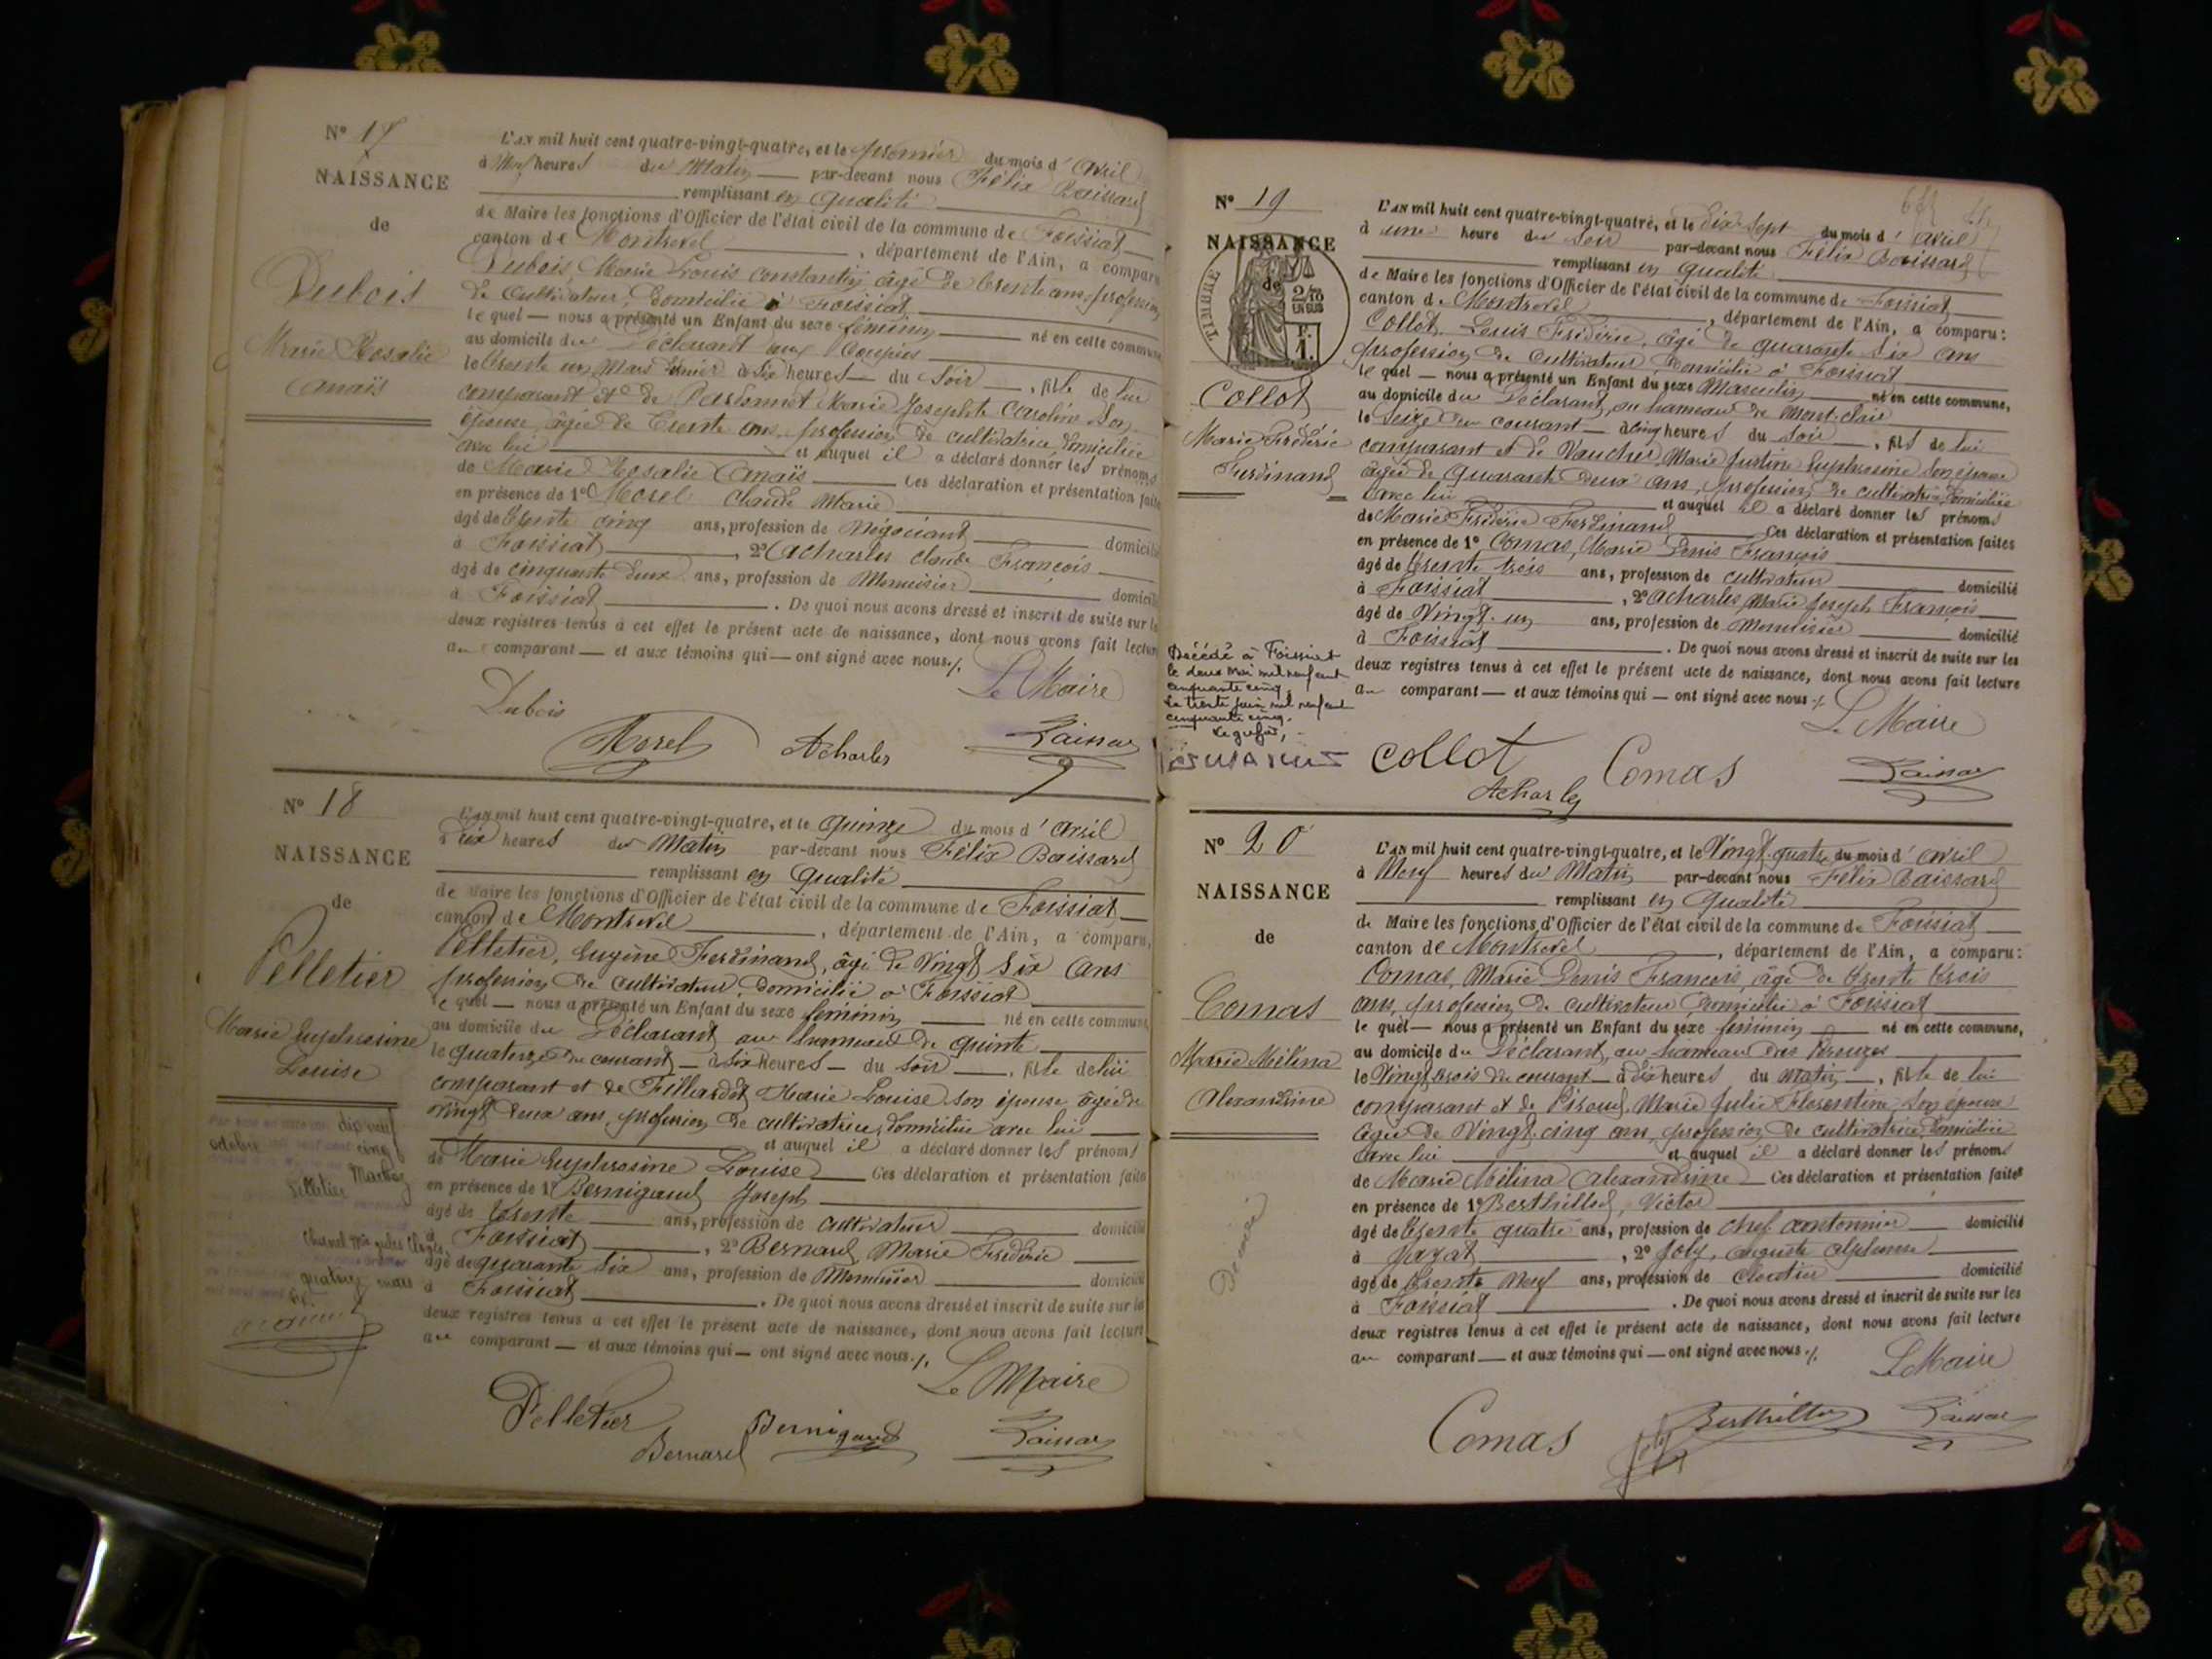 N° 17
NAISSANCE
de
Dubois
Marie Rosalie
Anaïs
L'AN mil huit cent quatre-vingt-quatre, et le premier du mois d'avril
à heures du Matin — par-devant nous Félix Baissard
remplissant en qualité
de Maire les fonctions d'Officier de l'état civil de la commune de Foissiat
canton de Montrevel, département de l'Ain, a comparu
Dubois, Marie Louis Constantin âgé de trente ans, profession
de Cultivateur, domicilié à Foissiat
le quel — nous a présenté un Enfant du sexe féminin — né en cette commune
au domicile du Déclarant aux
le trente un Mars dernier à six heures — du soir —, fille de lui
comparant et de Marie Josephte Caroline son
épouse, âgée de trente ans, profession de cultivatrice domiciliée
avec lui — et auquel il a déclaré donner les prénoms
de Marie Rosalie Anaïs — Ces déclaration et présentation faites
en présence de 1° Morel Claude Marie
âgé de trente cinq ans, profession de Négociant — domicilié
à Foissiat —, 2° Acharles Claude François
âgé de cinquante deux ans, profession de Menuisier — domicilié
à Foissiat — . De quoi nous avons dressé et inscrit de suite sur les
deux registres tenus à cet effet le présent acte de naissance, dont nous avons fait lecture
au comparant — et aux témoins qui — ont signé avec nous ./.
Le Maire
Dubois
Morel Acharles
N° 18
NAISSANCE
de
Pelletier
Marie Euphrosine
Louise
dix neuf
octobre cinq
Pelletier
quatorze mars
L'AN mil huit cent quatre-vingt-quatre, et le quinze du mois d'avril
à dix heures du Matin par-devant nous Félix Baissard
remplissant en qualité
de Maire les fonctions d'Officier de l'état civil de la commune de Foissiat
canton de Montrevel, département de l'Ain, a comparu,
Pelletier, Eugène Ferdinand, âgé de Vingt six ans
profession de cultivateur, domicilié à Foissiat
le quel — nous a présenté un Enfant du sexe féminin — né en cette commune,
au domicile du Déclarant au hameau de quinte
le quatorze du courant — à six heures — du soir —, fille de lui
comparant et de Fillardet Marie Louise son épouse âgée de
vingt deux ans, profession de cultivatrice, domiciliée avec lui
et auquel il a déclaré donner les prénoms
de Marie Euphrosine Louise — Ces déclaration et présentation faites
en présence de 1° Bernigaud Joseph
âgé de trente — ans, profession de cultivateur — domicilié
à Foissiat —, 2° Bernard Marie Frédéric
âgé de quarante six ans, profession de Menuisier — domicilié
à Foissiat — . De quoi nous avons dressé et inscrit de suite sur les
deux registres tenus à cet effet le présent acte de naissance, dont nous avons fait lecture
au comparant — et aux témoins qui — ont signé avec nous ./.
Le Maire
Pelletier
Bernard Bernigaud
N° 19
NAISSANCE
de
TIMBRE
Collot
Marie Frédéric
Ferdinand
Décédé à Foissiat
le deux mai mil neuf cent
cinquante cinq.
Le trente juin mil neuf cent
cinquante cinq.
Le greffier,
L'AN mil huit cent quatre-vingt-quatre, et le dix sept du mois d'avril
à une heure du soir par-devant nous Félix Baissard
remplissant en qualité
de Maire les fonctions d'Officier de l'état civil de la commune de Foissiat
canton de Montrevel, département de l'Ain, a comparu:
Collot, Louis Frédéric, âgé de quarante six ans
profession de Cultivateur domicilié à Foissiat
le quel — nous a présenté un Enfant du sexe Masculin — né en cette commune,
au domicile du Déclarant, au hameau de Mont-clair
le seize du courant — à cinq heures du soir —, fils de lui
comparant et de Vaucher, Marie Justine Euphrosine son épouse
âgée de quarante deux ans, profession de cultivatrice, domiciliée
avec lui — et auquel il a déclaré donner les prénoms
de Marie Frédéric Ferdinand — Ces déclaration et présentation faites
en présence de 1° Comas, Marie Denis François
âgé de trente trois ans, profession de cultivateur — domicilié
à Foissiat —, 2° Acharles Marie Joseph François
âgé de Vingt-un ans, profession de Menuisier — domicilié
à Foissiat — . De quoi nous avons dressé et inscrit de suite sur les
deux registres tenus à cet effet le présent acte de naissance, dont nous avons fait lecture
au comparant — et aux témoins qui — ont signé avec nous ./.
Le Maire
Collot Comas
Acharles
N° 20
NAISSANCE
de
Comas
Marie Mélina
Alexandrine
L'AN mil huit cent quatre-vingt-quatre, et le Vingt-quatre du mois d'avril
à Neuf heures du Matin par-devant nous Félix Baissard
remplissant en qualité
de Maire les fonctions d'Officier de l'état civil de la commune de Foissiat
canton de Montrevel, département de l'Ain, a comparu:
Comas, Marie Denis François, âgé de trente trois
ans, profession de cultivateur domicilié à Foissiat
le quel — nous a présenté un Enfant du sexe féminin — né en cette commune,
au domicile du Déclarant, au hameau des
le Vingt trois du courant — à dix heures du Matin —, fille de lui
comparant et de Piroud, Marie Julie Florentine son épouse
âgée de Vingt-cinq ans, profession de cultivatrice, domiciliée
avec lui — et auquel il a déclaré donner les prénoms
de Marie Mélina Alexandrine — Ces déclaration et présentation faites
en présence de 1° Berthillod, Victor
âgé de trente quatre ans, profession de chef cantonnier — domicilié
à Jayat —, 2° Joly, Auguste Alphonse
âgé de trente Neuf ans, profession de cloutier — domicilié
à Foissiat — . De quoi nous avons dressé et inscrit de suite sur les
deux registres tenus à cet effet le présent acte de naissance, dont nous avons fait lecture
au comparant — et aux témoins qui — ont signé avec nous ./.
Le Maire
Comas